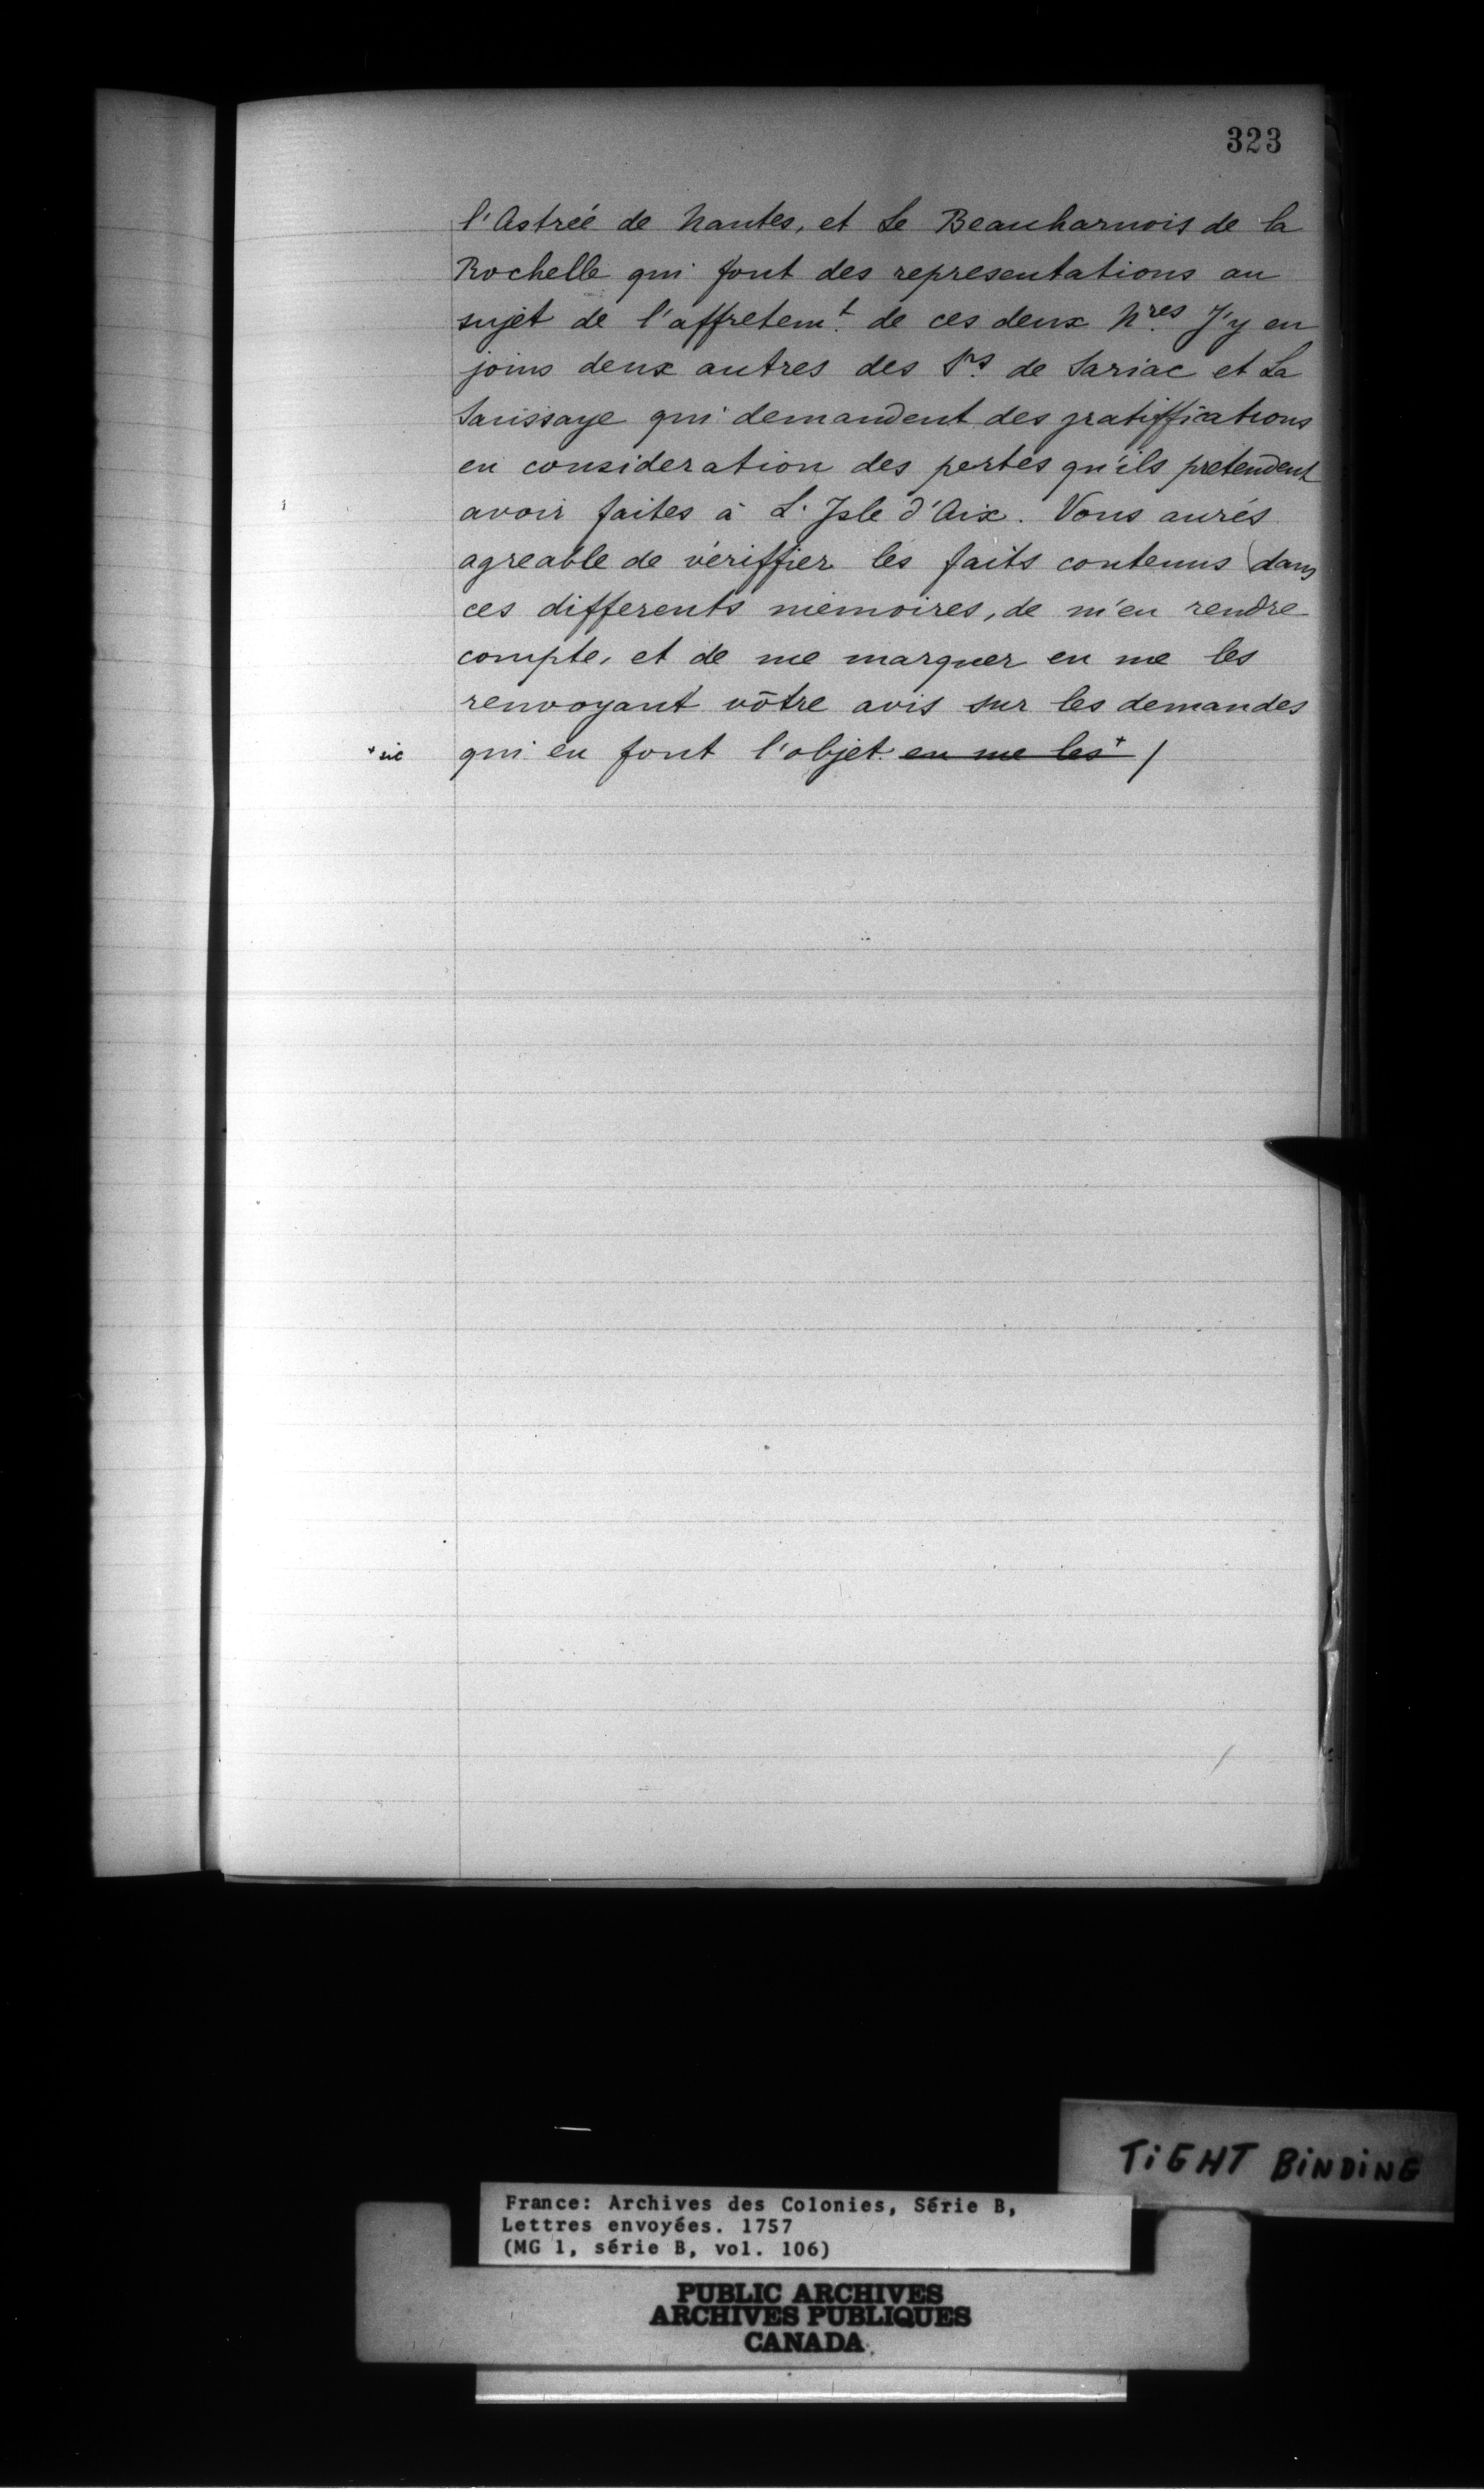 323
l'Astrée de Nantes, et Le Beauharnois de la
Rochelle qui font des representations au
sujet de l'affretemt. de ces deux Nres. J'y en
joins deux autres des Srs. de Sariac et La
Saussaye qui demandent des gratiffications
en consideration des pertes qu'ils pretendent
avoir faites à L'Isle d'Aix. Vous aurés
agreable de vériffier les faits contenus dans
ces differents mémoires, de m'en rendre
compte, et de me marquer en me les
renvoyant vôtre avis sur les demandes
+sic qui en font l'objet. en me les+ /
TiGHT BiNDiNG
France: Archives des Colonies, Série B,
Lettres envoyées. 1757
(MG 1, série B, vol. 106)
PUBLIC ARCHIVES
ARCHIVES PUBLIQUES
CANADA